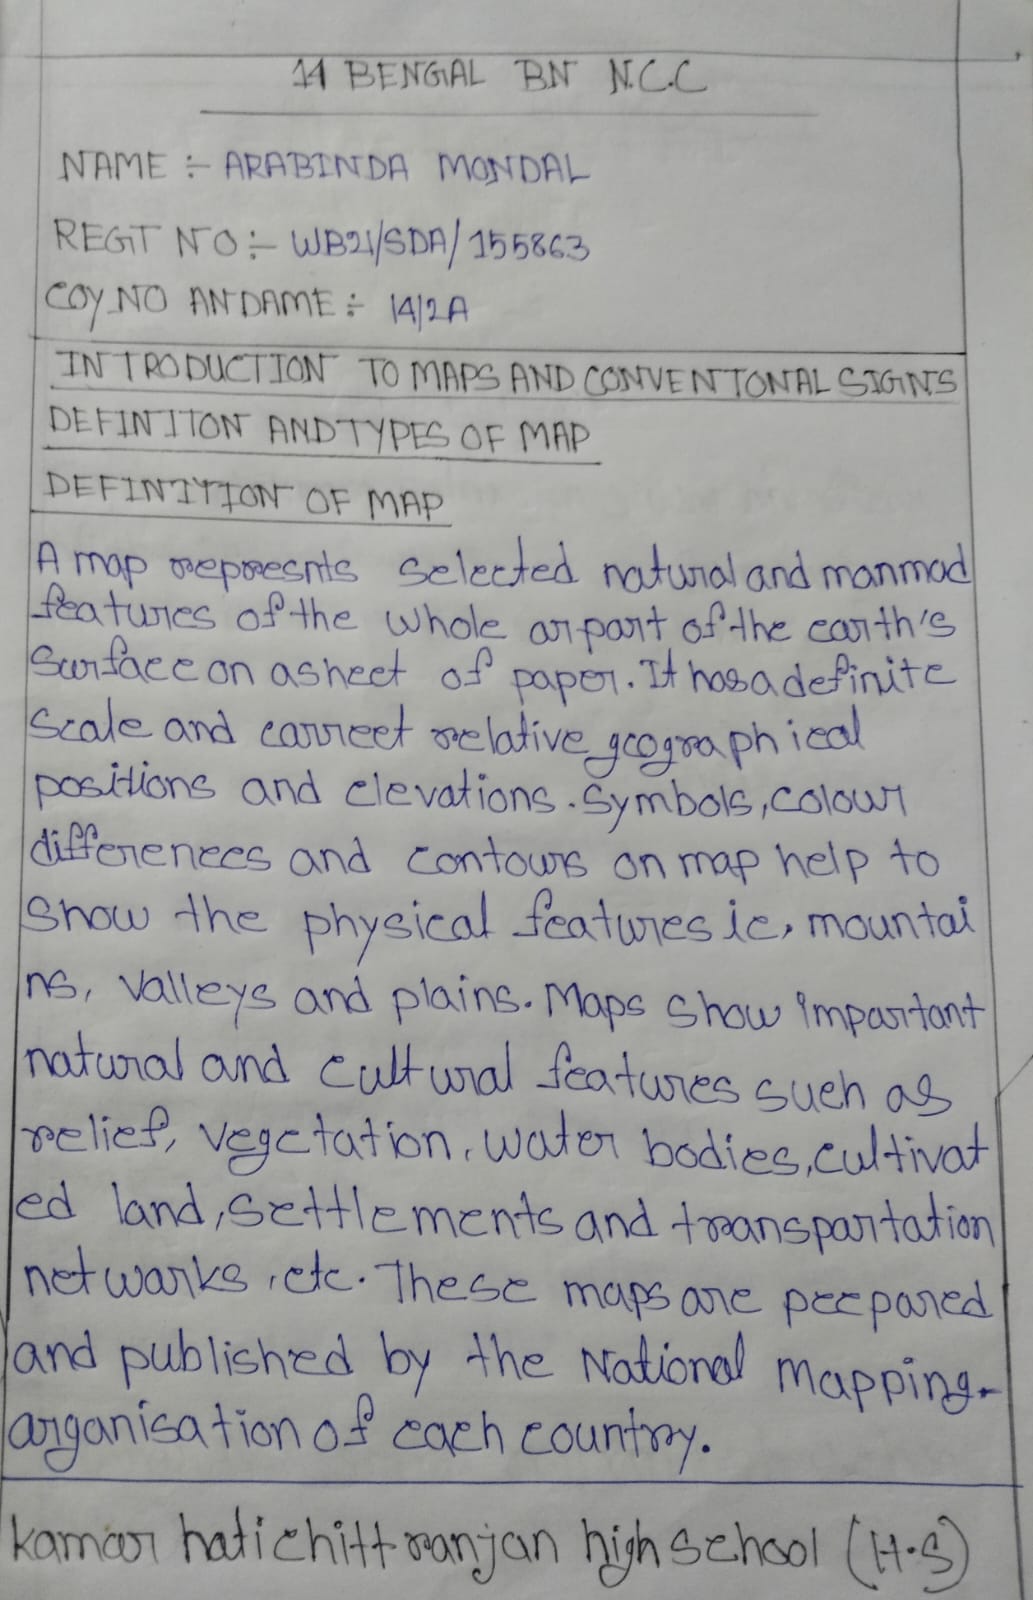 14 BENGAL BN N.C.C
NAME :- ARABINDA MONDAL
REGT NO :- WB21/SDA/155863
COY NO ANDAME :- 14/2A
INTRODUCTION TO MAPS AND CONVENTONAL SIGNS
DEFINITON AND TYPES OF MAP
DEFINITION OF MAP
A map represnts selected natural and manmad
features of the whole or part of the earth's
Surface on a sheet of paper. It has a definite
Scale and correct relative geographical
positions and elevations. Symbols, colour
differences and contours on map help to
Show the physical features ie, mountai
ns, Valleys and plains. Maps Show important
natural and cultural features such as
relief, vegetation, water bodies, cultivat
ed land, settlements and transportation
networks, etc. These maps are peepared
and published by the National Mapping-
organisation of each country.
kamar hatichittranjan high school (H.S)